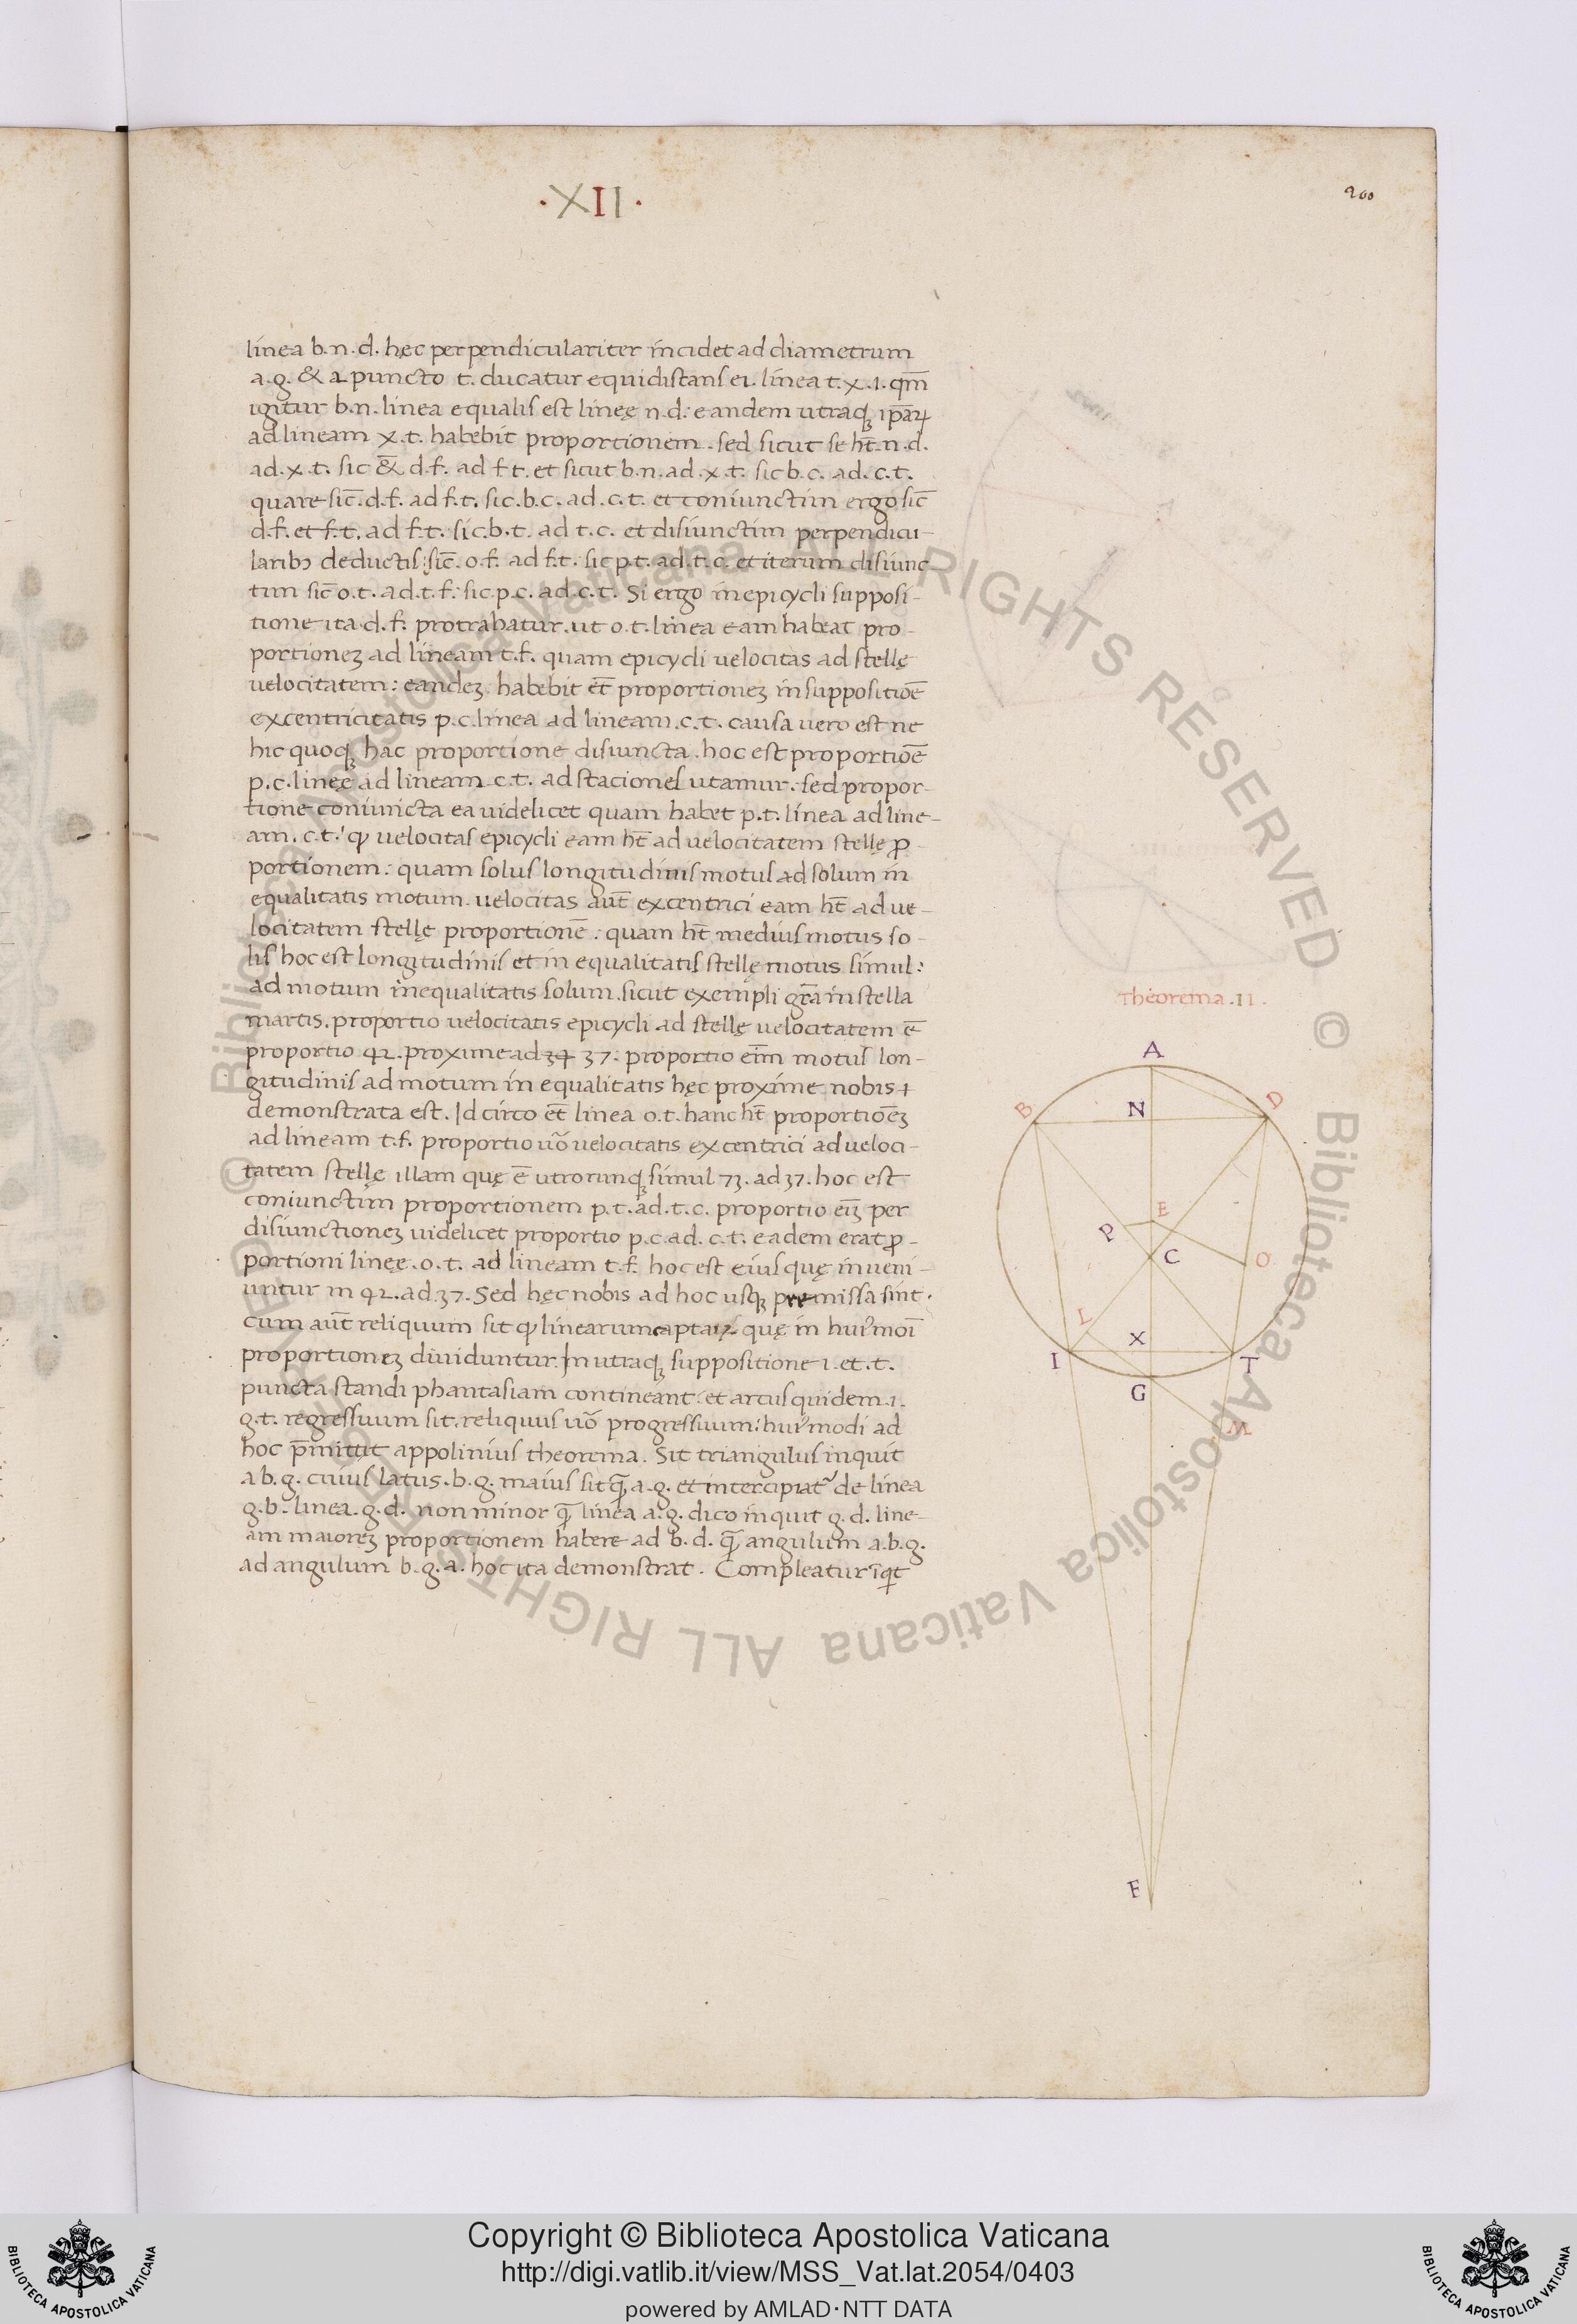 ·XII·
200
linea b.n.d. hęc perpendiculariter incidet ad diametrum
a.g. & a puncto t. ducatur equidistans ei. linea t.x.i. qm̅
igitur b.n. linea equalis est linee n.d. eandem utraq
ad lineam x.t. habebit proportionem. sed sicut se ht̅. n.d.
ad. x.t. sic & d.f. ad f t. et sicut b.n. ad. x.t. sic b.c. ad. c.t.
quare sic̅. d.f. ad f.t. sic. b.c. ad. c.t. et coniunctim ergo sic̅
d.f. et f.t. ad f.t. sic. b.t. ad t.c. et disiunctim perpendicu-
laribꝫ deductis: sic̅. o.f. ad f.t. sic p.t. ad. t.c. et iterum disiunc-
tim sic̅ o.t. ad. t.f. sic. p.c. ad. c.t. Si ergo in epicycli supposi-
tione ita d.f. protrahatur. ut o.t. linea eam habeat pro-
portioneꝫ ad lineam t.f. quam epicycli velocitas ad stellę
velocitatem: eandeꝫ habebit et̅ proportioneꝫ in suppositioe̅
excentricitatis p.c. linea ad lineam. c.t. causa vero est ne
hic quoqꝫ hac proportione disiuncta. hoc est proportioe̅
p.c. lineę ad lineam c.t. ad staciones utamur. sed propor-
tione coniuncta ea videlicet quam habet p.t. linea ad line-
am. c.t. ꝙ velocitas epicycli eam ht̅ ad velocitatem stellę ꝓ-
portionem: quam solus longitudinis motus ad solum in
equalitatis motum. velocitas aut̅ excentrici eam ht̅ ad ve-
locitatem stellę proportione̅: quam ht̅ medius motus so-
lis hoc est longitudinis et in equalitatis stellę motus simul:
ad motum inequalitatis solum. sicut exempli gr̅a in stella
martis. proportio velocitatis epicycli ad stellę velocitatem e̅
proportio 42. proxime ad 34 37. proportio eim̅ motus lon-
gitudinis ad motum in equalitatis hęc proxime nobis
demonstrata est. Id circo et̅ linea o.t. hanc ht̅ proportioe̅ꝫ
ad lineam t.f. proportio uo̅ velocitatis excentrici ad veloci-
tatem stellę illam quę e̅ utrorunqꝫ simul 73. ad 37. hoc est
coniunctim proportionem p.t. ad. t.c. proportio eiꝫ per
disiunctioneꝫ videlicet proportio p.c. ad. c.t. eadem erat ꝓ-
portioni lineę. o.t. ad lineam t.f. hoc est eius quę inveni-
untur in 42. ad. 37. Sed hęc nobis ad hoc usqꝫ premissa sint.
cum aut̅ reliquum sit ꝙ linearum captarꝫ quę in hui᾽ moi̅
proportioneꝫ dividuntur. In utraqꝫ suppositione i. et. t.
puncta standi phantasiam contineant. et arcus quidem. i.
g.t. regressivum sit. reliquus uo̅ progressivum: hui᾽ modi ad
hoc p̅mittit appolinius theorema. Sit triangulus inquit
a b.g. cuius latus. b.g. maius sit q̅ꝫ a.g. et intercipiat᾽ de linea
g.b. linea. g.d. non minor q̅ꝫ linea a.g. dico inquit g.d. line-
am maioreꝫ proportionem habere ad b.d. q̅ꝫ angulum a.b.g.
ad angulum b.g.a. hoc ita demonstrat. Compleatur
Theorema .II.
A
B
N
D
E
P
C
O
L
X
I
T
G
M
F
© Biblioteca Apostolica Vaticana ALL RIGHTS RESERVED © Biblioteca Apostolica Vaticana ALL RIGHTS RESERVED
BIBLIOTECA APOSTOLICA VATICANA
Copyright © Biblioteca Apostolica Vaticana
http://digi.vatlib.it/view/MSS_Vat.lat.2054/0403
powered by AMLAD·NTT DATA
BIBLIOTECA APOSTOLICA VATICANA